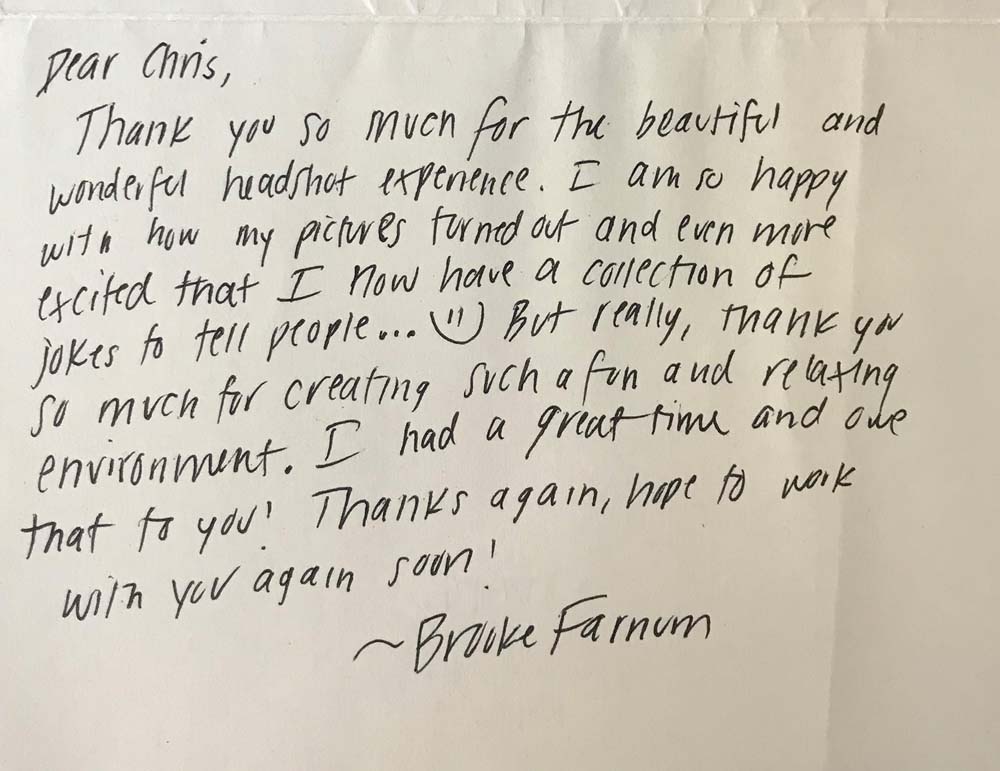 Dear Chris,
Thank you so much for the beautiful and
wonderful headshot experience. I am so happy
with how my pictures turned out and even more
excited that I now have a collection of
jokes to tell people... But really, thank you
so much for creating such a fun and relaxing
environment. I had a great time and owe
that to you! Thanks again, hope to work
with you again soon!
~Brooke Farnum